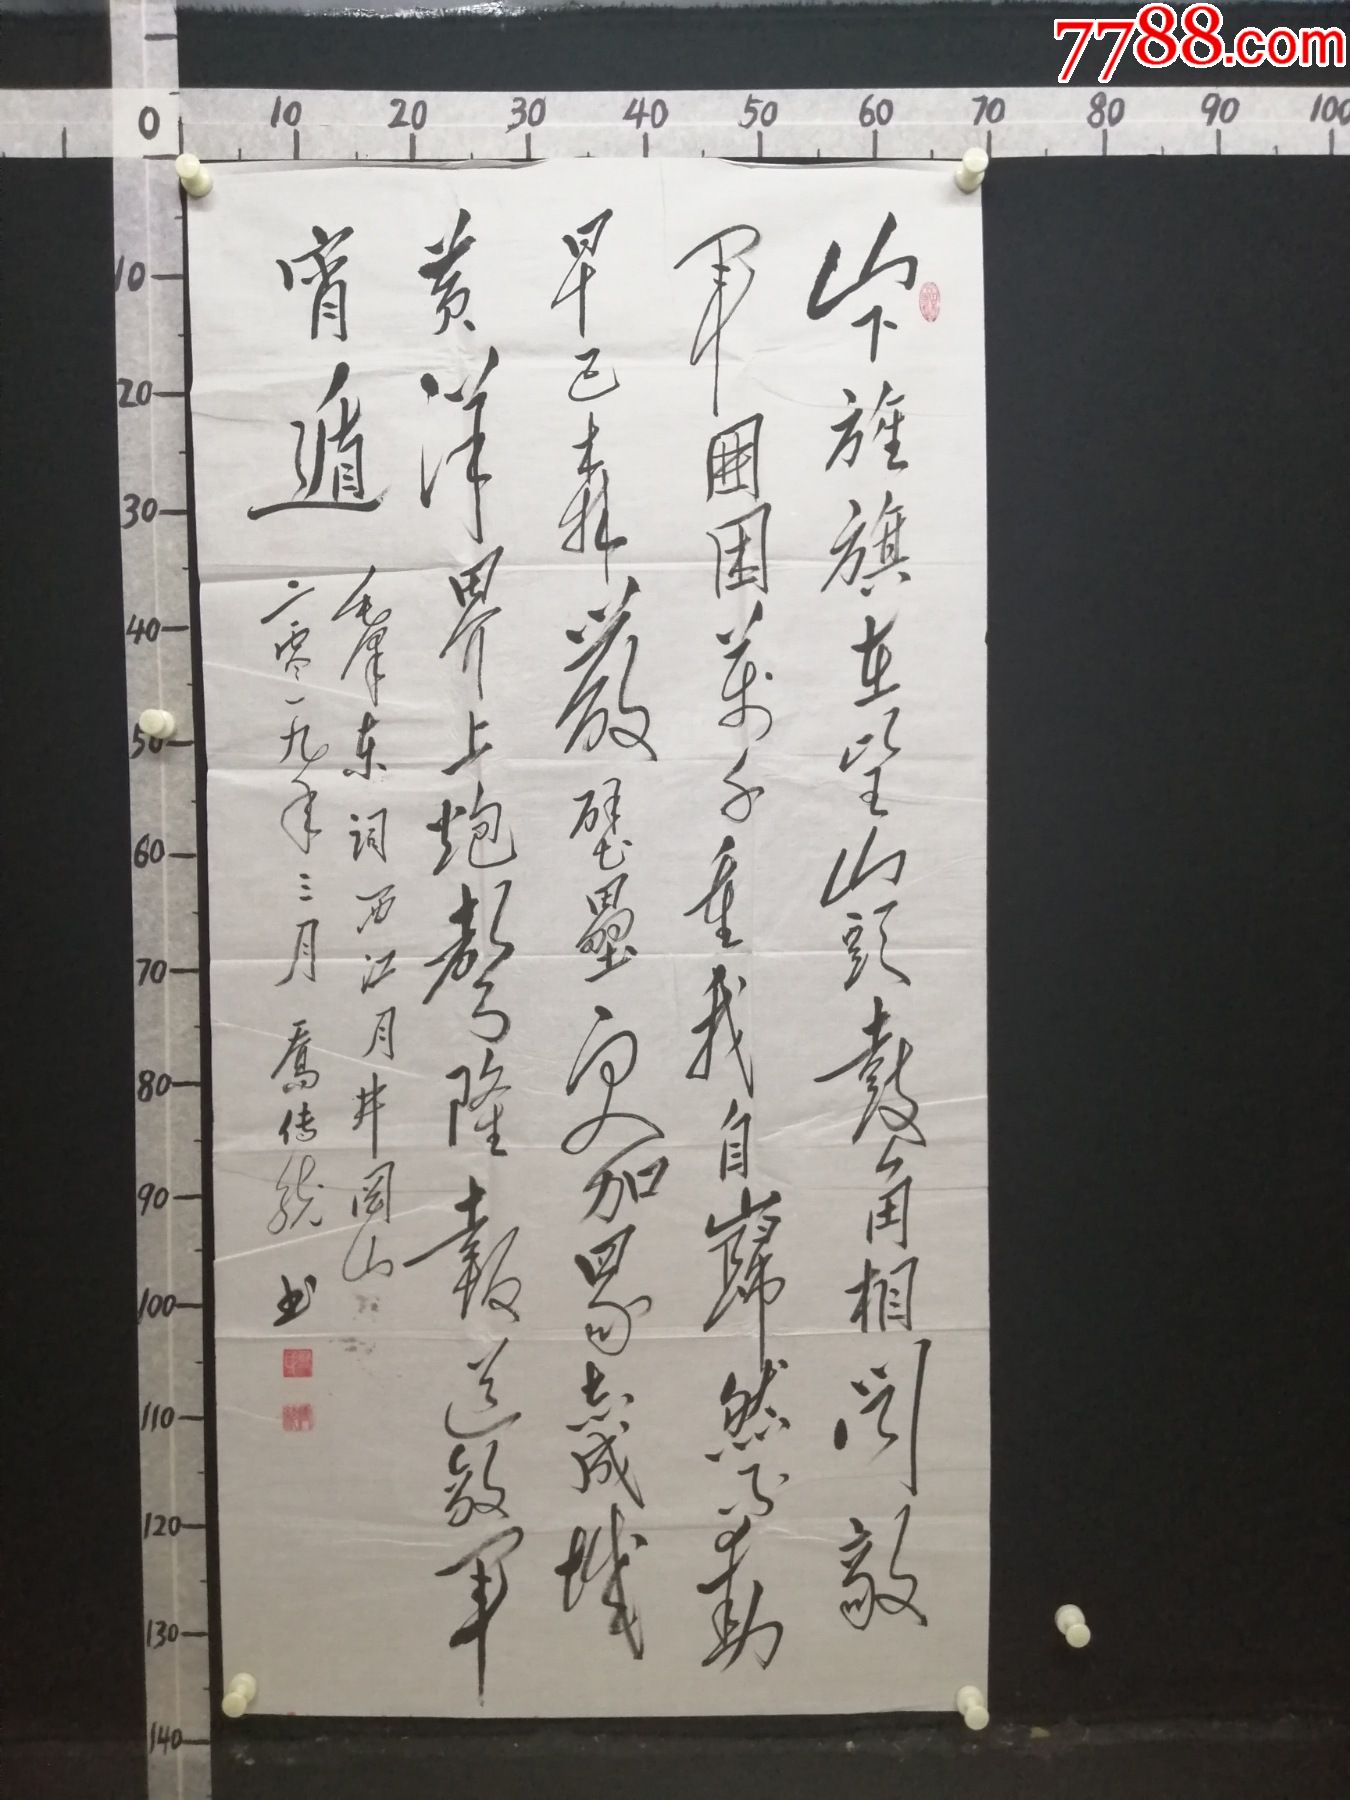 7788.com
0 10 20 30 40 50 60 70 80 90 100
10
20
30
40
50
60
70
80
90
100
110
120
130
140
山下旌旗在望山頭鼓角相闻敵
军囲困萬千重我自巋然不動
早已森嚴壁壘更加眾志成城
黄洋界上炮聲隆報道敵军
宵遁
毛澤東词西江月井岡山
二零一九年三月 喬传 书